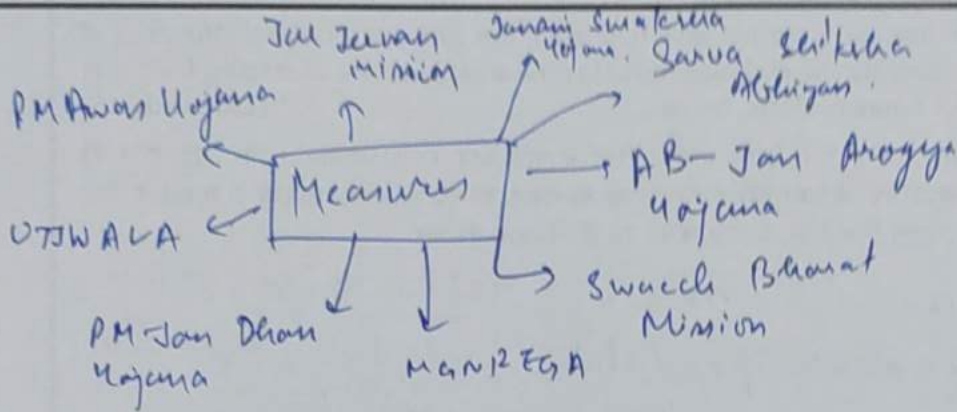 Jal Jeevan
Mission
Janani Suraksha
Yojana.
Sarva Shiksha
Abhiyan.
PM Awas Yojana
Measures
AB - Jan Arogya
Yojana
UJJWALA
Swacch Bharat
Mission
PM-Jan Dhan
Yojana
MGNREGA